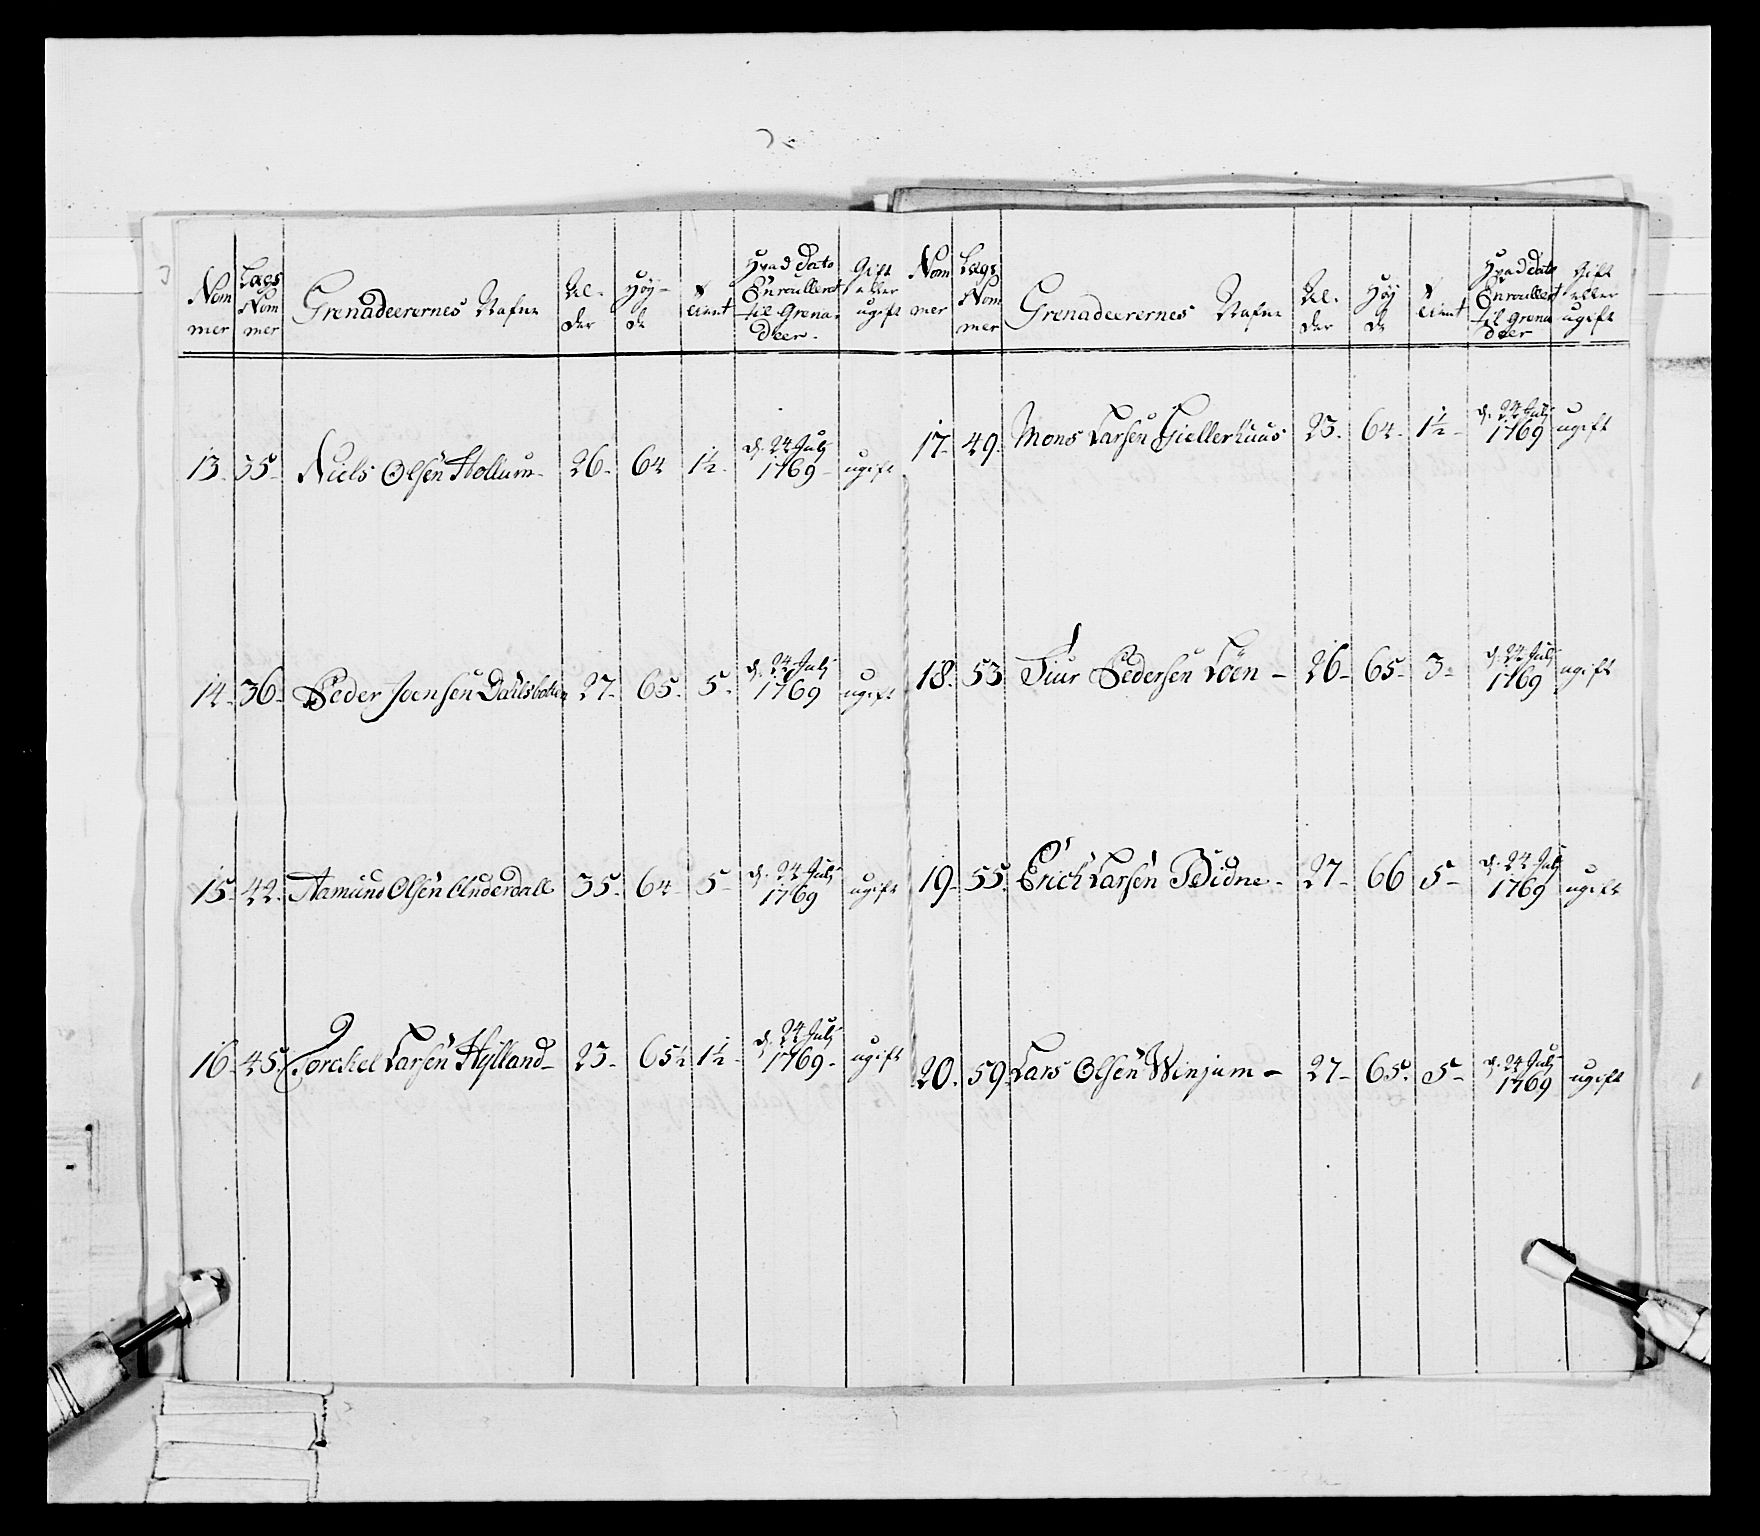 Nom mer | Lægs Nom mer | Grenadeerernes Nafne | Al- der | Høy- de | Tient | Hvad Dato Enroullert til Grena- deer. | Gift eller ugift
13. | 35- | Niels Olsen Hollum- | 26- | 64 | 1½- | d. 24 Julj 1769- | ugift
14- | 36- | Peder Joensen | 27- | 65- | 5- | d. 24 Julj 1769 | ugift
15- | 42- | Aamund Olsen Underdall | 35- | 64- | 5- | d. 24 Julj 1769 | ugift
16- | 45 | Torckel Larsen Hylland- | 23- | 65½ | 1½- | d. 24 Julj 1769- | ugift
Nom mer | Lægs Nom mer | Grenadeerernes Nafne | Al- der | Høy de | Tient | Hvad Dato Enroullert til Grena deer | Gift eller ugift
17- | 49. | Mons Larsen Giellerhuus | 23. | 64- | 1½- | d. 24 Julj 1769 | ugift
18. | 53 | Siur Pedersen Loen- | 26- | 65- | 3- | d. 24 Julj 1769 | ugift
19- | 55. | Erich Larsen Bidne- | 27- | 66 | 5- | d. 24 Julj 1769 | ugift
20. | 59. | Lars Olsen Winjum- | 27- | 65. | 5- | d. 24 Julj 1769 | ugift